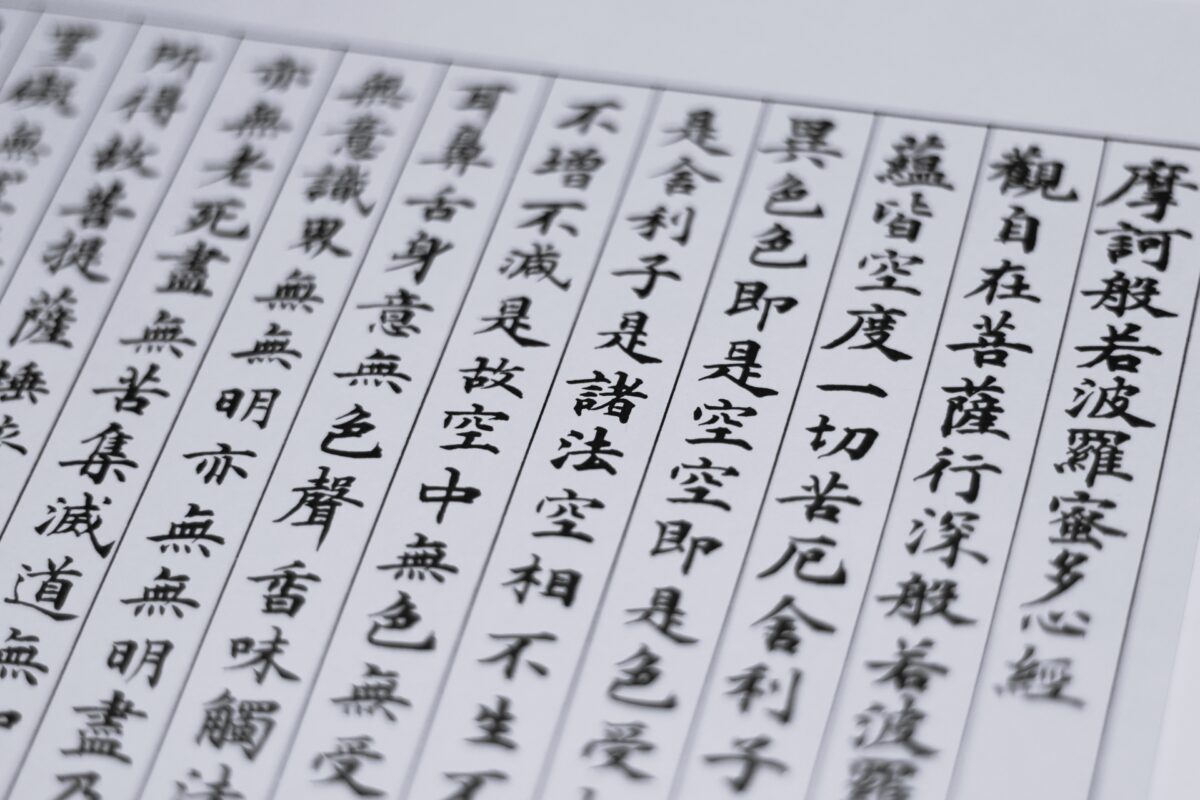 摩訶般若波羅蜜多心經
觀自在菩薩行深般若波羅
蘊皆空度一切苦厄舍利子
異色色即是空空即是色受
是舍利子是諸法空相不生不
不增不減是故空中無色無受
耳鼻舌身意無色聲香味觸法
無意識界無無明亦無無明盡乃
亦無老死盡無苦集滅道無
所得故菩提薩埵
罣礙無